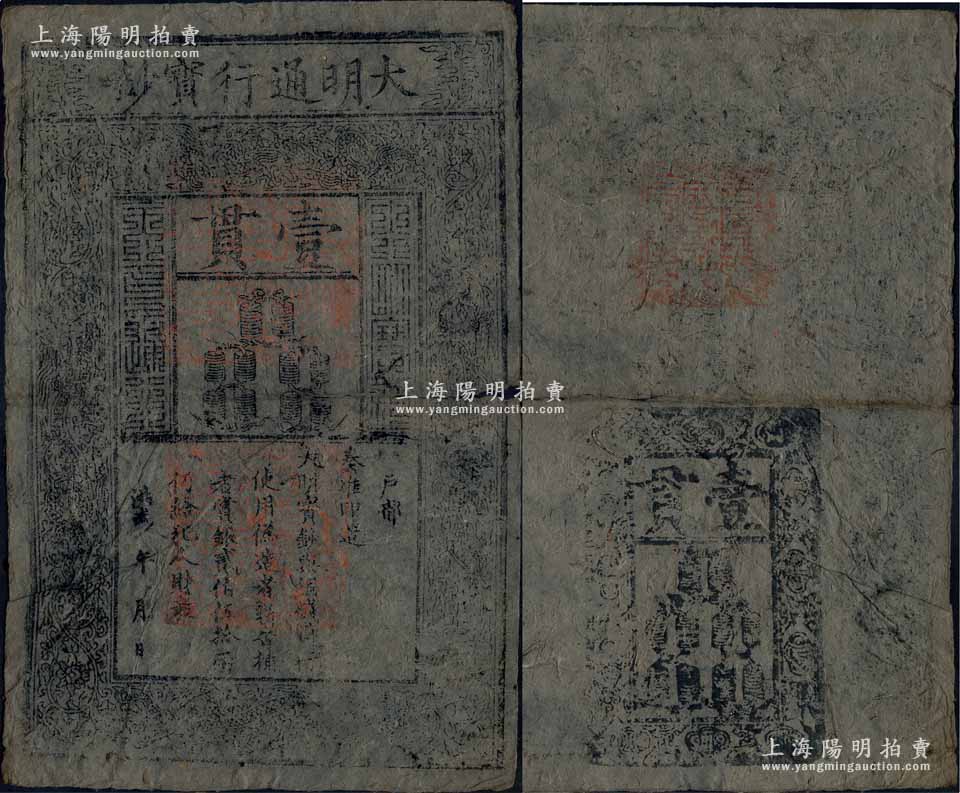 上海陽明拍賣
www.yangmingauction.com
大明通行寶鈔
壹貫
戶部
奏准印造
大明寶鈔與銅錢通
使用偽造者斬告捕
者賞銀貳佰伍拾兩
仍給犯人財產
洪武 年 月 日
上海陽明拍賣
www.yangmingauction.com
壹貫
上海陽明拍賣
www.yangmingauction.com